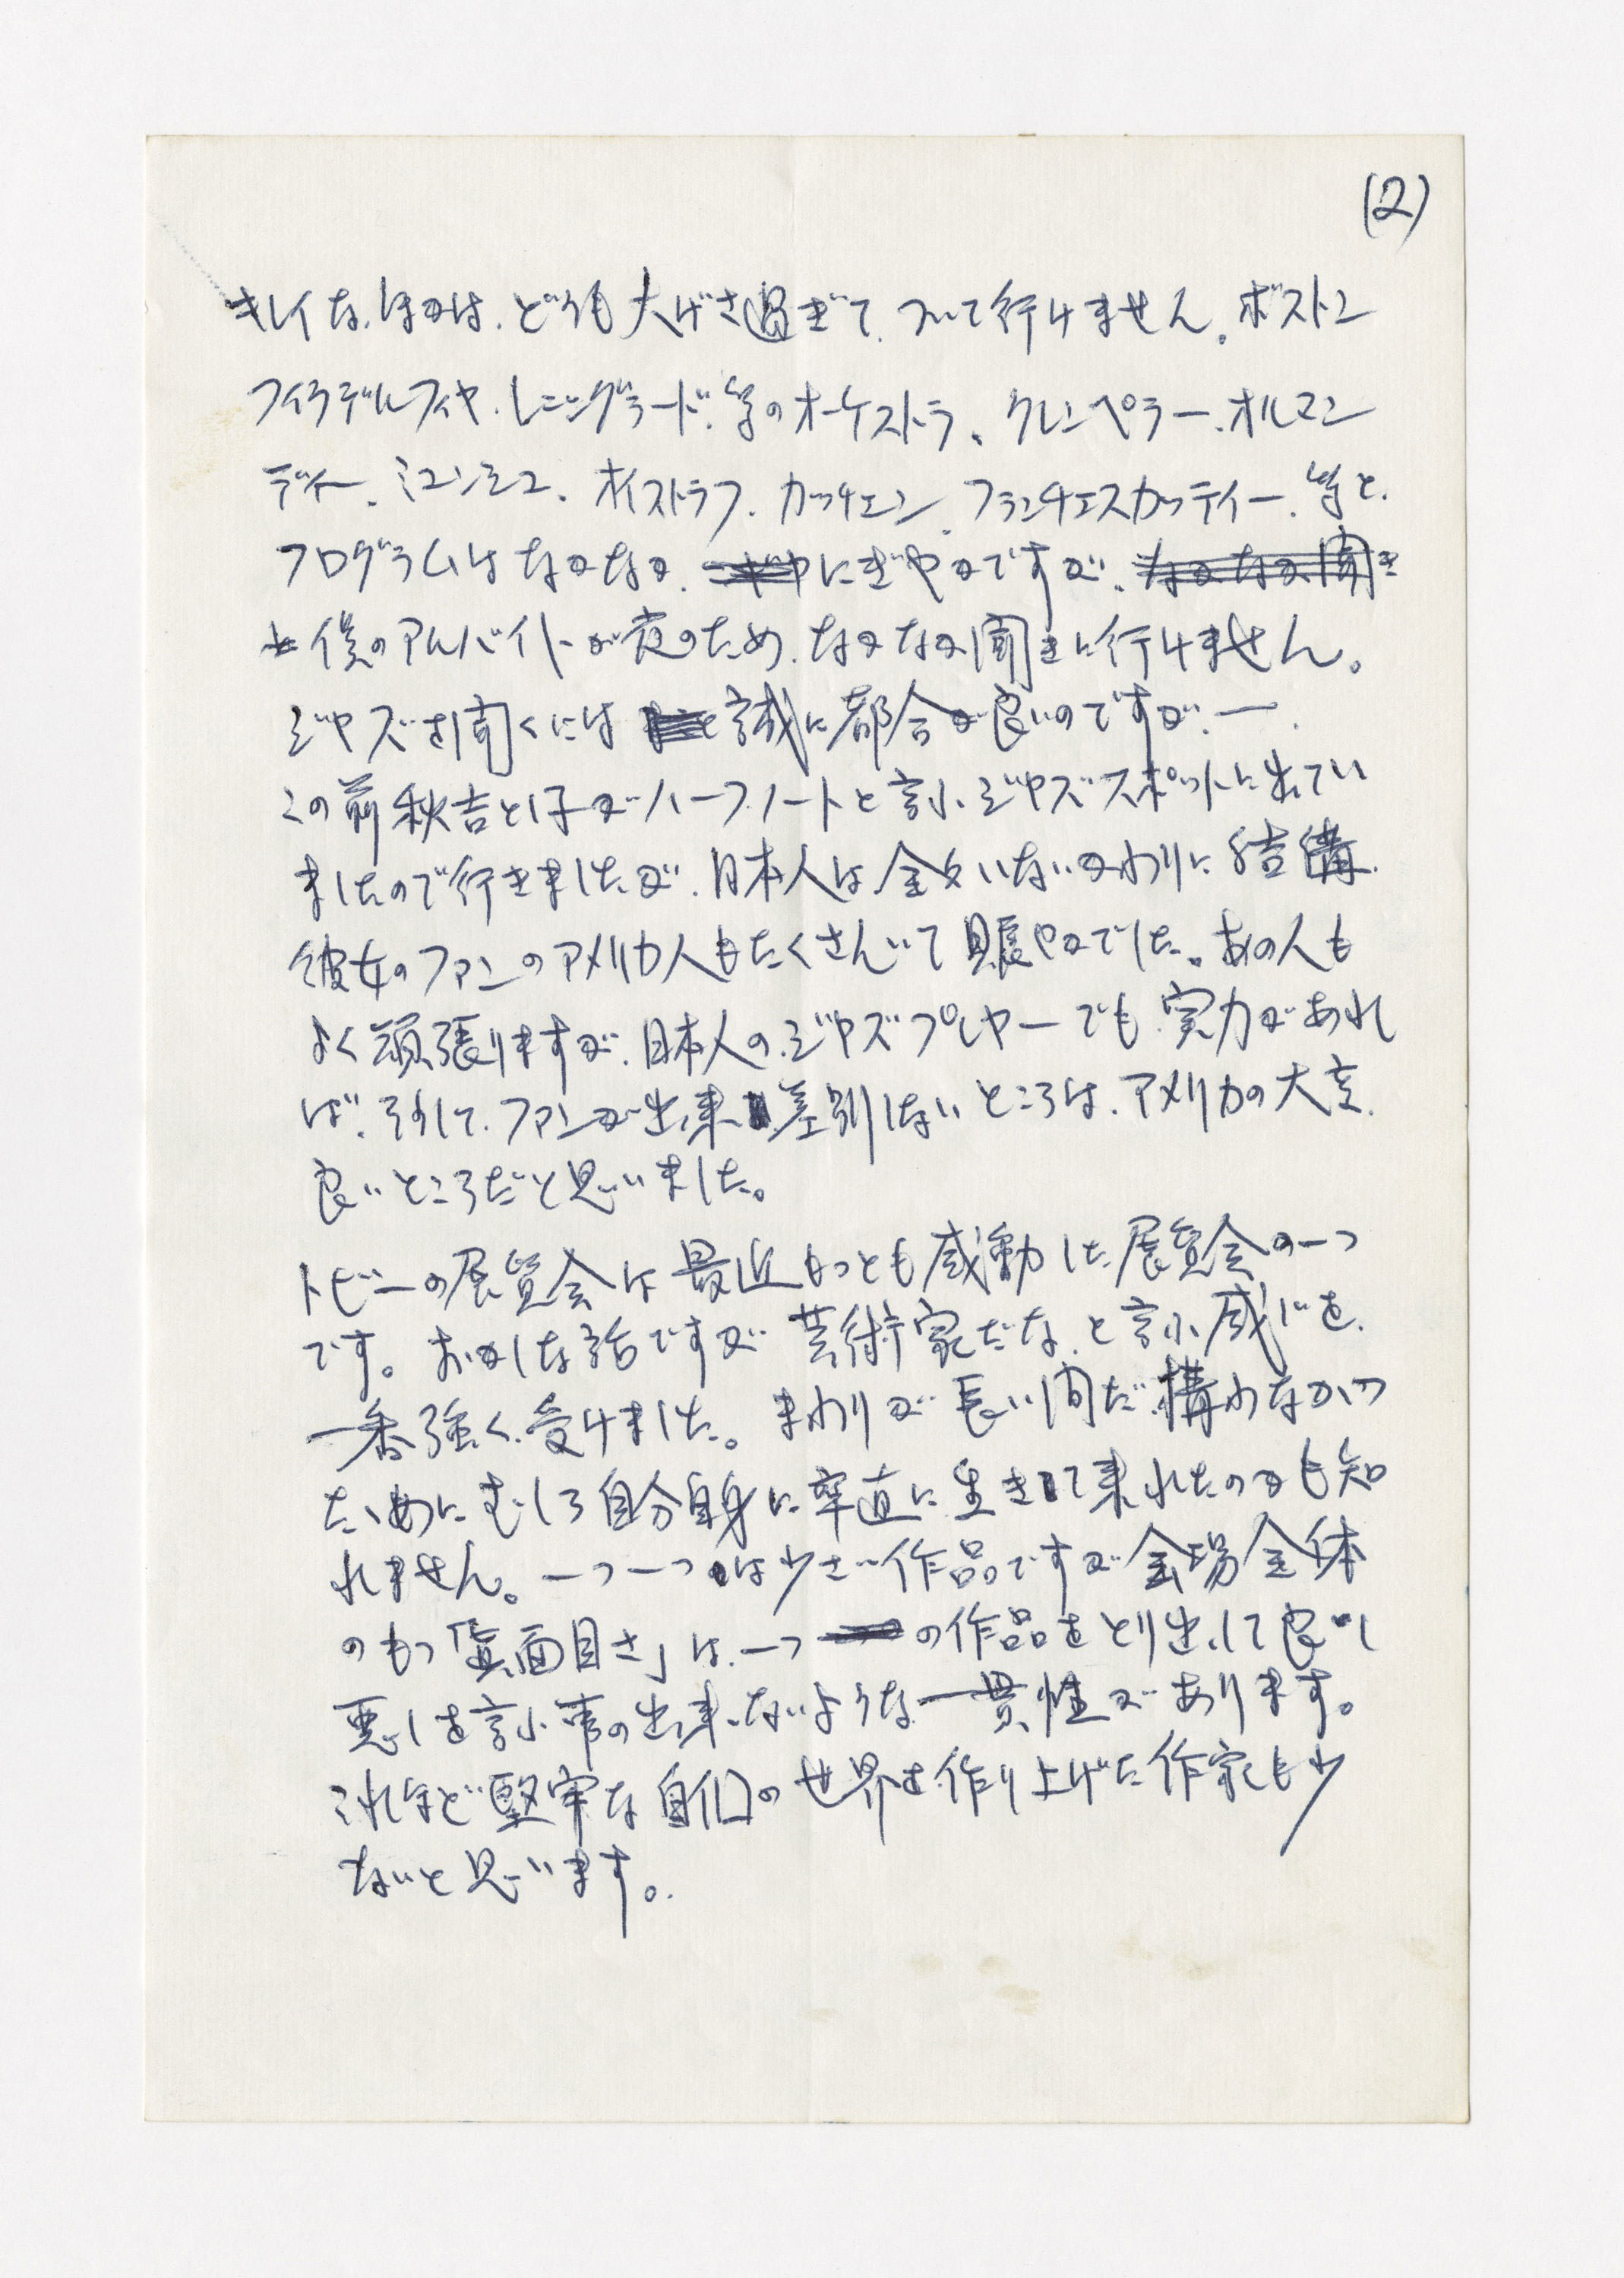 (2)
キレイな、ほかは、どうも大げさ過ぎて、ついて行けません。ボストン
フィラデルフィヤ、レニングラード、等のオーケストラ、クレンペラー、オルマン
ディー、ミュンシュ、オイストラフ、カッチェン、フランチェスカッティー、等と、
プログラムはなかなか、にぎやかですが、なかなか聞き
僕のアルバイトが夜のため、なかなか聞きに行けません。
ジャズを聞くには誠に都合が良いのですが、ー、
この前秋吉とし子がハーフノートと言ふジャズスポットに出てい
ましたので行きましたが、日本人は全々いないかわりに結構
彼女のファンのアメリカ人もたくさんいて賑やかでした。あの人も
よく頑張りますが、日本人のジャズプレヤーでも実力があれ
ば、そうして、ファンが出来差別しないところは、アメリカの大変
良いところだと思いました。
トビーの展覧会は最近もっとも感動した展覧会の一つ
です。おかしな話ですが芸術家だな、と言ふ感じを、
一番強く受けました。まわりが長い間だ構わなかっ
たためにむしろ自分自身に率直に生きて来れたのかも知
れません。一つ一つは少さい作品ですが会場全体
のもつ「真面目さ」は、一つの作品をとり出して良い
悪しを言ふ事の出来ないような一貫性があります。
これほど堅牢な自分の世界を作り上げた作家も少
ないと思います。